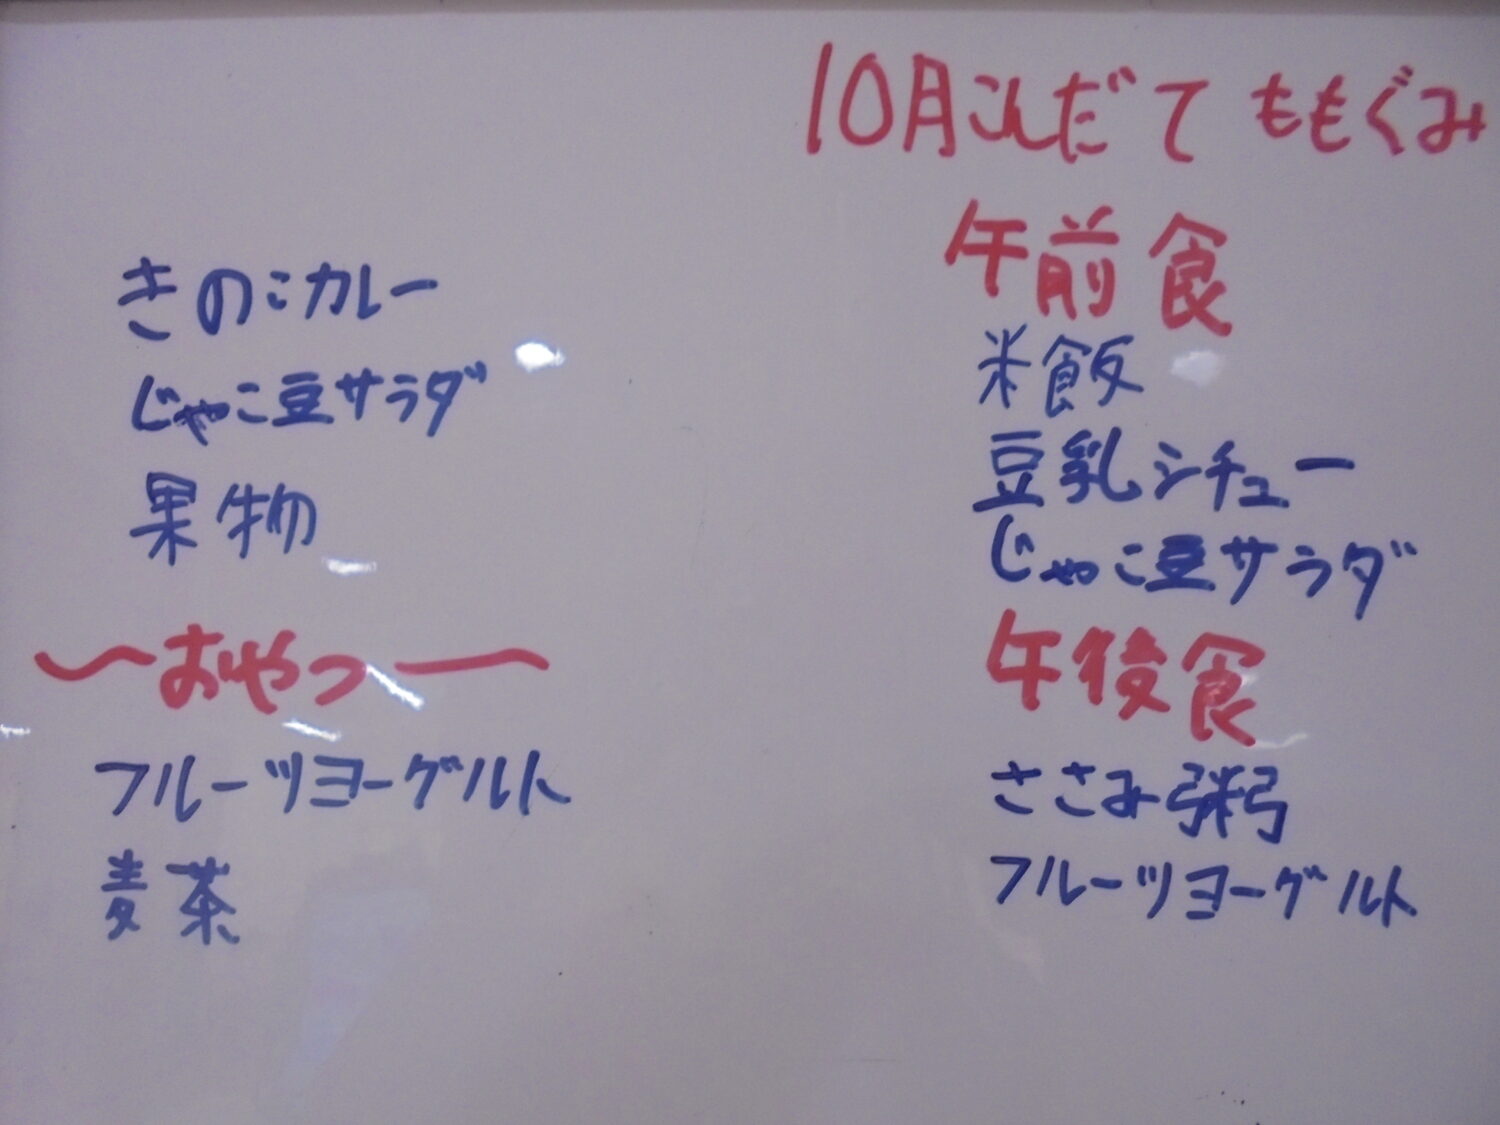 きのこカレー
じゃこ豆サラダ
果物
〜おやつ〜
フルーツヨーグルト
麦茶
10月こんだて ももぐみ
午前食
米飯
豆乳シチュー
じゃこ豆サラダ
午後食
ささみ粥
フルーツヨーグルト